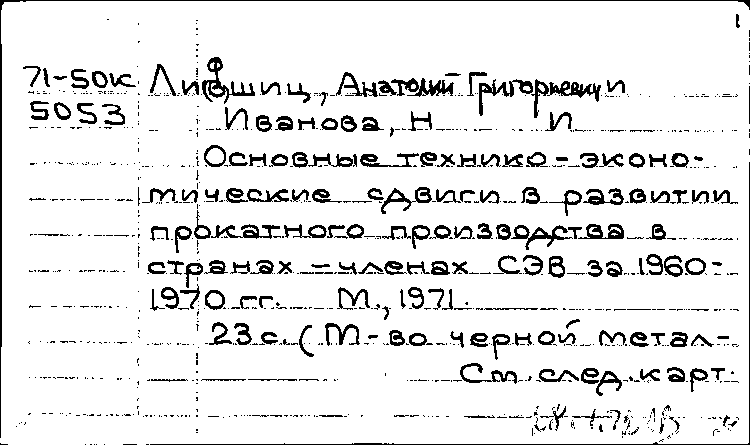 1
71-50к Лифшиц, Анатолий Григорьевич и
5053 Иванова, Н И
Основные технико-эконо-
мические сдвиги в развитии
прокатного производства в
странах-членах СЭВ за 1960-
1970 гг. М., 1971.
23 с. (М-во черной метал-
См. след. карт.